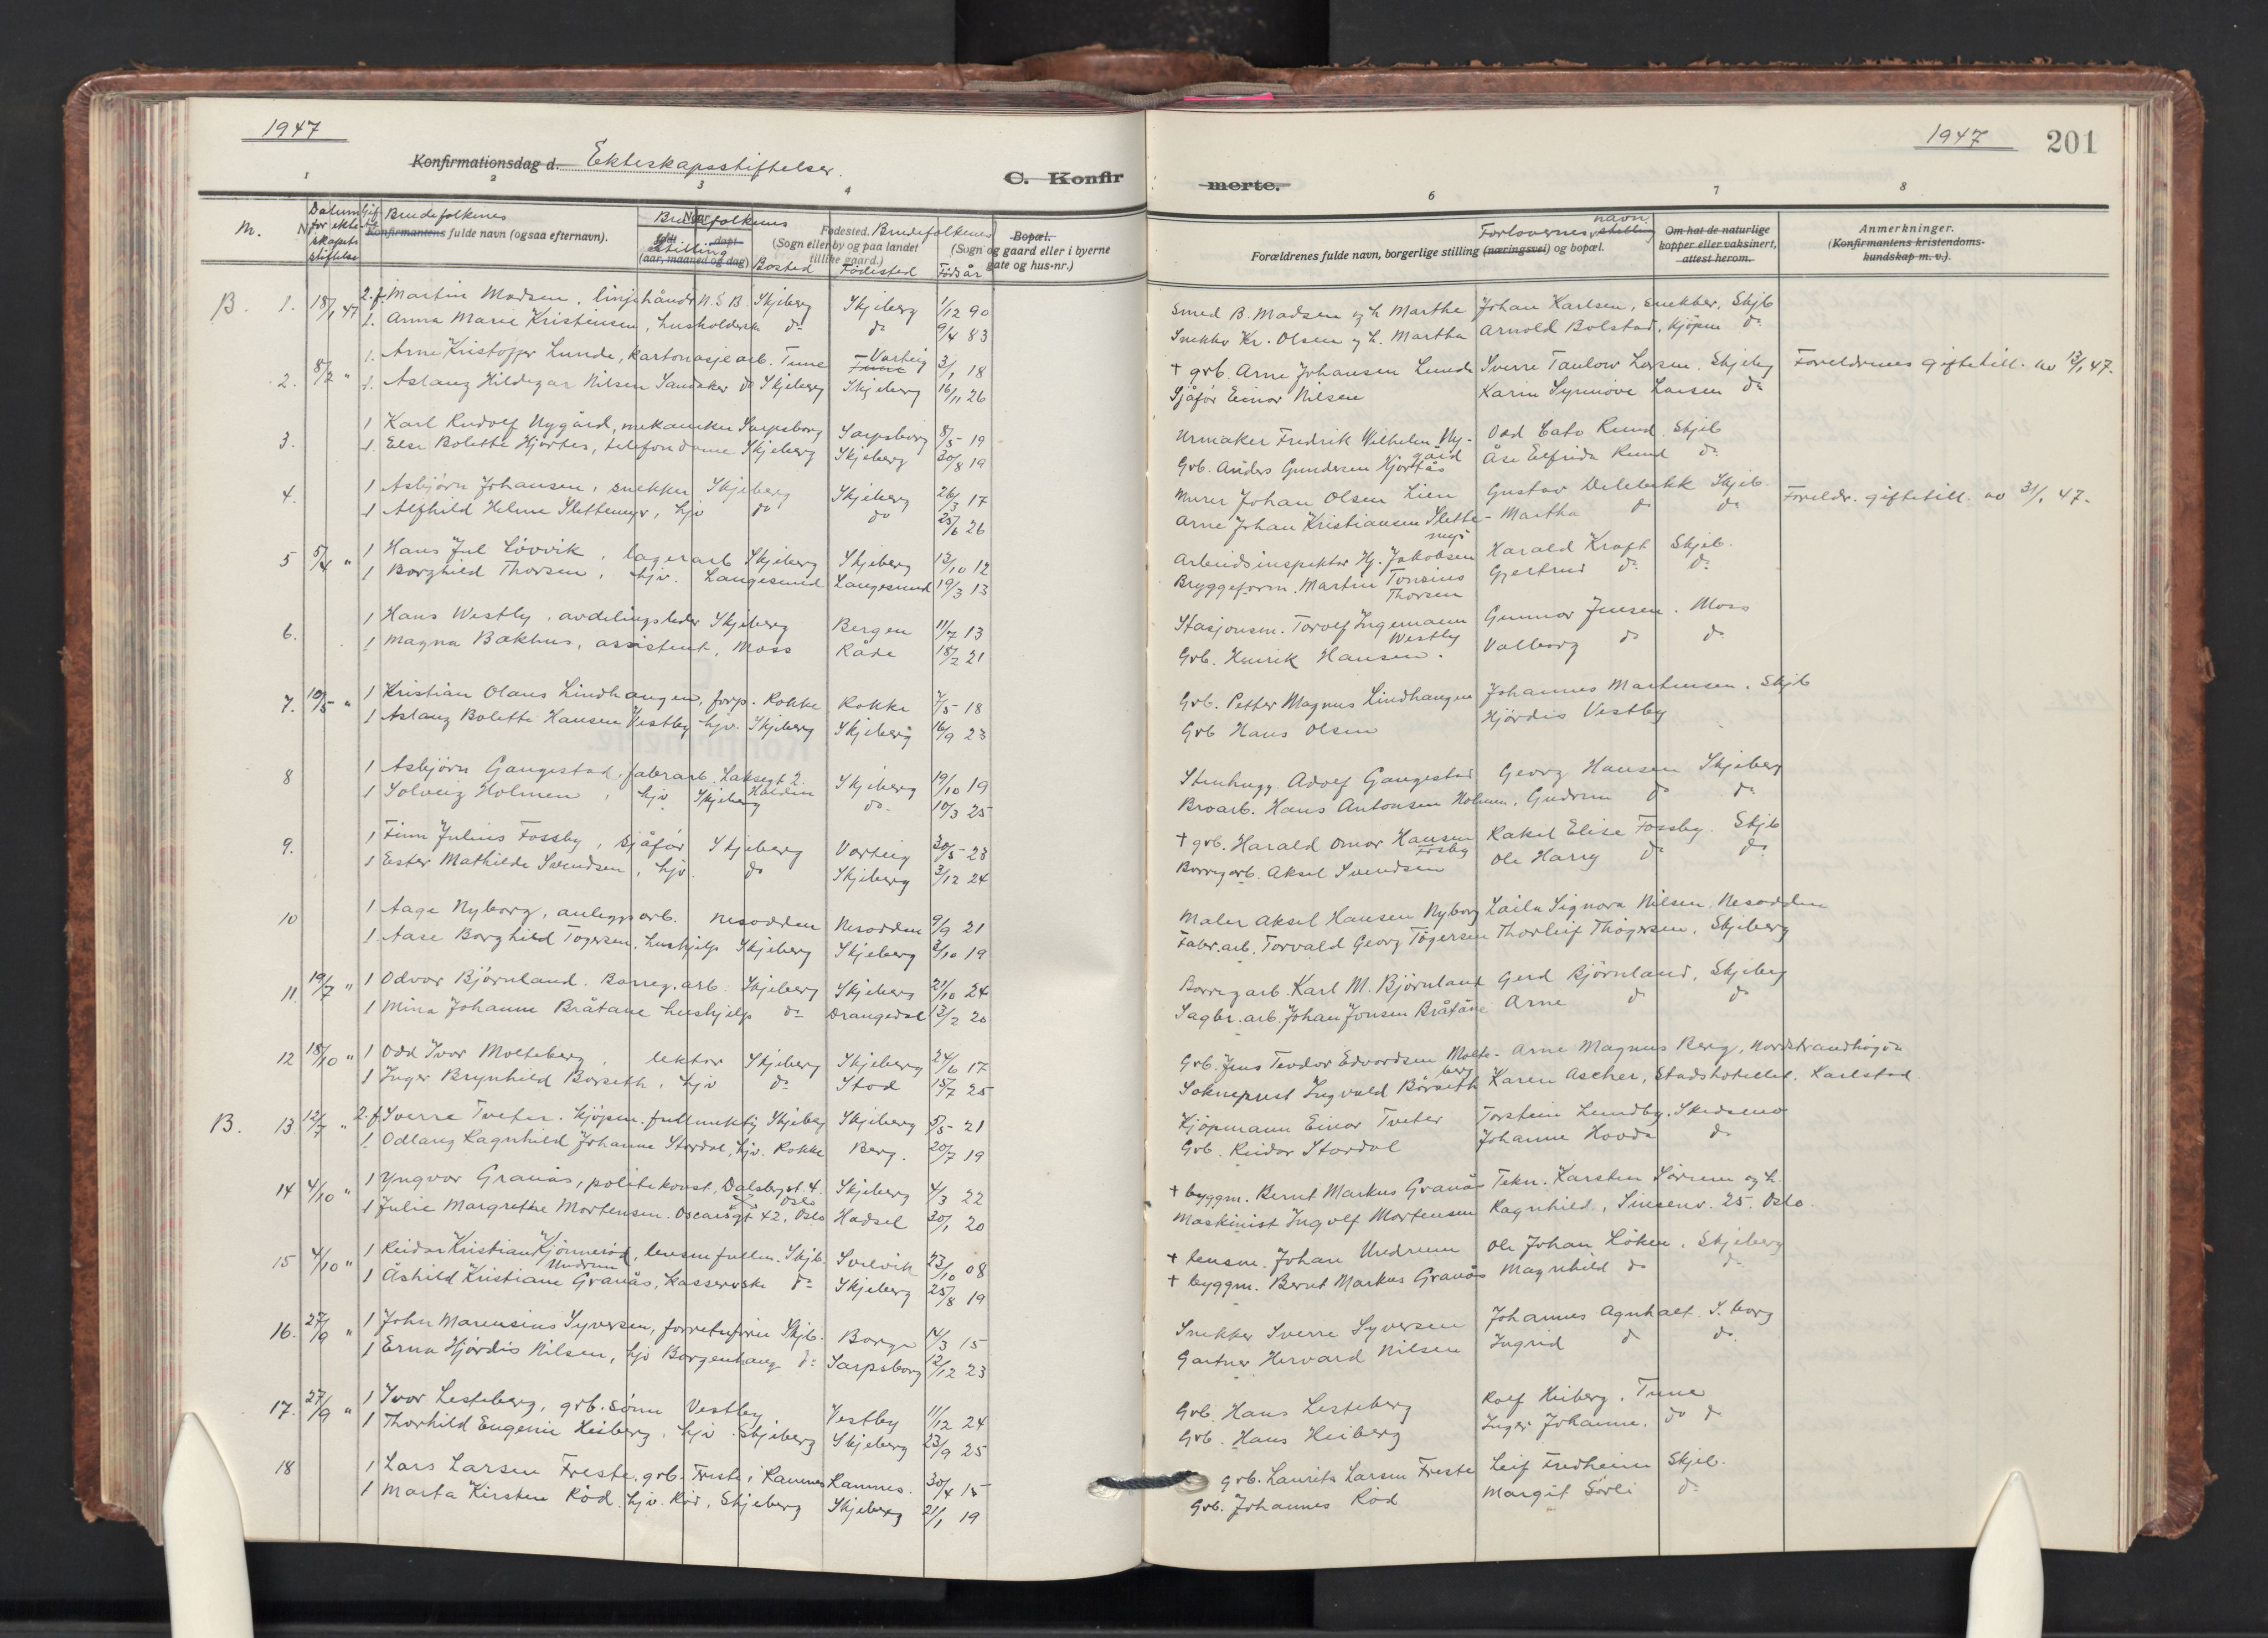 1947
Konfirmationsdag d. Ekteskapsstiftelser.
C. Konfir
1 2 3 4
M. N Datum for ekteskapets stiftelse Gift Brudefolkenes
Konfirmantens fulde navn (ogsaa efternavn).
Brudefolkenes Naar født døpt Stilling (aar, maaned og dag) Bosted
Fødested. Brudefolkenes (Sogn eller by og paa landet tillike gaard.) Födested
Bopæl. (Sogn og gaard eller i byerne gate og hus-nr.) Föds år
B. 1. 18/1 47 2.f. Martin Madsen, linjehåndv. N.S.B. Skjeberg Skjeberg 1/12 90
1. Anna Marie Kristensen, husholderske do do 9/4 83
2. 8/2 " 1. Arne Kristoffer Lunde, kartonasjearb. Tune Tune Varteig 3/1 18
1. Aslaug Hildegar Nilsen Sandaker do Skjeberg Skjeberg 16/11 26
3. 1 Karl Rudolf Nygård, mekaniker Sarpsborg Sarpsborg 8/5 19
1. Else Bolette Hjortås, telefondame Skjeberg Skjeberg 30/8 19
4. 1 Asbjörn Johansen, snekker Skjeberg Skjeberg 26/3 17
1 Alfhild Helene Slettemyr, hjv do do 25/6 26
5 5/4 " 1 Hans Jul Lövvik, lagerarb Skjeberg Skjeberg 13/10 12
1 Borghild Thorsen, hjv. Langesund Langesund 19/3 13
6. 1 Hans Westby, avdelingsleder Skjeberg Bergen 11/7 13
1 Magna Bakhus, assistent, Moss Råde 18/2 21
7. 10/5 " 1 Kristian Olaus Lindhaugen, forp. Rokke Rokke 7/5 18
1 Aslaug Bolette Hansen Vestby hjv. Skjeberg Skjeberg 16/9 23
8 1 Asbjörn Gangestad, fabrarb. Laksegt 2. Halden Skjeberg 19/10 19
1 Solveig Holmen, hjv Skjeberg do. 10/3 25
9. 1 Finn Julius Fossby, sjåför Skjeberg Varteig 30/5 23
1 Ester Mathilde Svendsen, hjv. do Skjeberg 3/12 24
10 1 Aage Nyborg, anleggsarb. Nesodden Nesodden 9/9 21
1. Aase Borghild Tögersen, hushjelp Skjeberg Skjeberg 3/10 19
11. 19/7 " 1 Odvar Björnland. Borreg.arb. Skjeberg Skjeberg 21/10 24
1 Mina Johanne Bråtane hushjelp do Drangedal 13/2 20
12 18/10 " 1 Odd Ivar Molteberg, lektor Skjeberg Skjeberg 24/6 17
1 Inger Brynhild Borseth, hjv do Stod 15/7 25
B. 13. 12/7 " 2.f. Sverre Tveter. Kjöpm. fullmektig Skjeberg Skjeberg 5/5 21
1. Odlaug Ragnhild Johanne Stordal, hjv. Rokke Berg. 20/7 19
14 4/10 " 1 Yngvar Granås, politikonst. Dalsbergst. 4. Oslo Skjeberg 4/3 22
1 Julie Margrethe Mortensen. Oscarsgt 42, Oslo Hadsel 30/1 20
15 4/10 " 1 Reidar Kristian Kjönneröd Undrum, lensm.fullm. Skjb. Svelvik 23/10 08
1 Åshild Kristiane Granås, kassererske do Skjeberg 25/8 19
16. 27/9 " 1 John Marensius Syversen, forretnförer Skjb. Borge 14/3 15
1 Erna Hjördis Nilsen, hjv Borgenhaug do Sarpsborg 12/12 23
17. 27/9 " 1 Ivar Lesteberg, grb. sönn Vestby Vestby 11/12 24
1 Thorhild Eugenie Heiberg, hjv. Skjeberg Skjeberg 23/9 25
18 1 Lars Larsen Freste. grb. Freste i Ramnes Ramnes. 30/4 15
1 Marta Kirsten Röd. hjv. Röd, Skjeberg Skjeberg 21/1 19
1947 201
merte.
6 7 8
Forældrenes fulde navn, borgerlige stilling (næringsvei) og bopæl.
Forlovernes navn stilling
Om hat de naturlige kopper eller vaksinert, attest herom.
Anmerkninger. (Konfirmantens kristendomskundskap m. v.).
Smed B. Madsen og h. Marthe Johan Karlsen, snekker, Skjb
Snekker Kr. Olsen og h. Martha Arnold Bolstad, kjöpm do
+ grb. Arne Johansen Lunde Sverre Taulow Larsen. Skjeberg Foreldrenes giftetill. av 13/1 47.
Sjåför Einar Nilsen Karin Synnöve Larsen do
Urmaker Fredrik Wilhelm Nygård Odd Cato Rund. Skjeb
Grb. Anders Gundersen Hjortås Åse Elfrida Rund do
Murer Johan Olsen Lien Gustav Delebekk Skjeb. Foreldr. giftetill. av 31/1 47.
Arne Johan Kristiansen Slettemyr Martha do do
Arbeidsinspektör Hj. Jakobsen Harald Kraft Skjeb.
Bryggeform. Martin Tonsius Thorsen Gjertrud do do
Stasjonsm. Torolf Ingemann Westby Gunnar Jensen. Moss
Grb. Henrik Hansen. Valborg do do
Grb. Petter Magnus Lindhaugen Johannes Martinsen. Skjb
Grb Hans Olsen Hjördis Vestby
Stenhugg. Adolf Gangestad Georg Hansen Skjeberg
Broarb. Hans Antonsen Holmen, Gudrun do do
+ grb. Harald Omar Hansen Fosby Rakel Elise Fossby. Skjb
Borregarb. Aksel Svendsen Ole Harry do do
Maler Aksel Hansen Nyborg Laila Signora Nilsen. Nesodden
Fabr.arb. Torvald Georg Tögersen Thorleif Thögersen. Skjeberg
Borregarb. Karl M. Björnland Gerd Björnland, Skjeberg
Sagbr.arb. Johan Jonsen Bråtåne Arne do do
Grb. Jens Teodor Edvardsen Molteberg Arne Magnus Berg, Nordstrandhögda
Sokneprest Ingvald Börseth Karen Ascher, Stadshotellet. Karlstad
Kjöpmann Einar Tveter Torstein Lundby. Skedsmo
Grb. Reidar Stordal Johanne Hovda do
+ byggm. Bernt Markus Granås Tekn. Karsten Sörum og h.
Maskinist Ingolf Mortensen Ragnhild, Sinsenv. 25. Oslo.
+ lensm. Johan Undrum Ole Johan Löken. Skjeberg
+ byggm. Bernt Markus Granås Magnhild do do
Snekker Sverre Syversen Johannes Agnhalt. S.borg
Gartner Hervard Nilsen Ingrid do do.
Grb. Hans Lesteberg Rolf Heiberg. Tune
Grb. Hans Heiberg Inger Johanne. do do
Grb. Laurits Larsen Freste Leif Fredheim Skjeb.
Grb. Johannes Röd Margit Sörli do